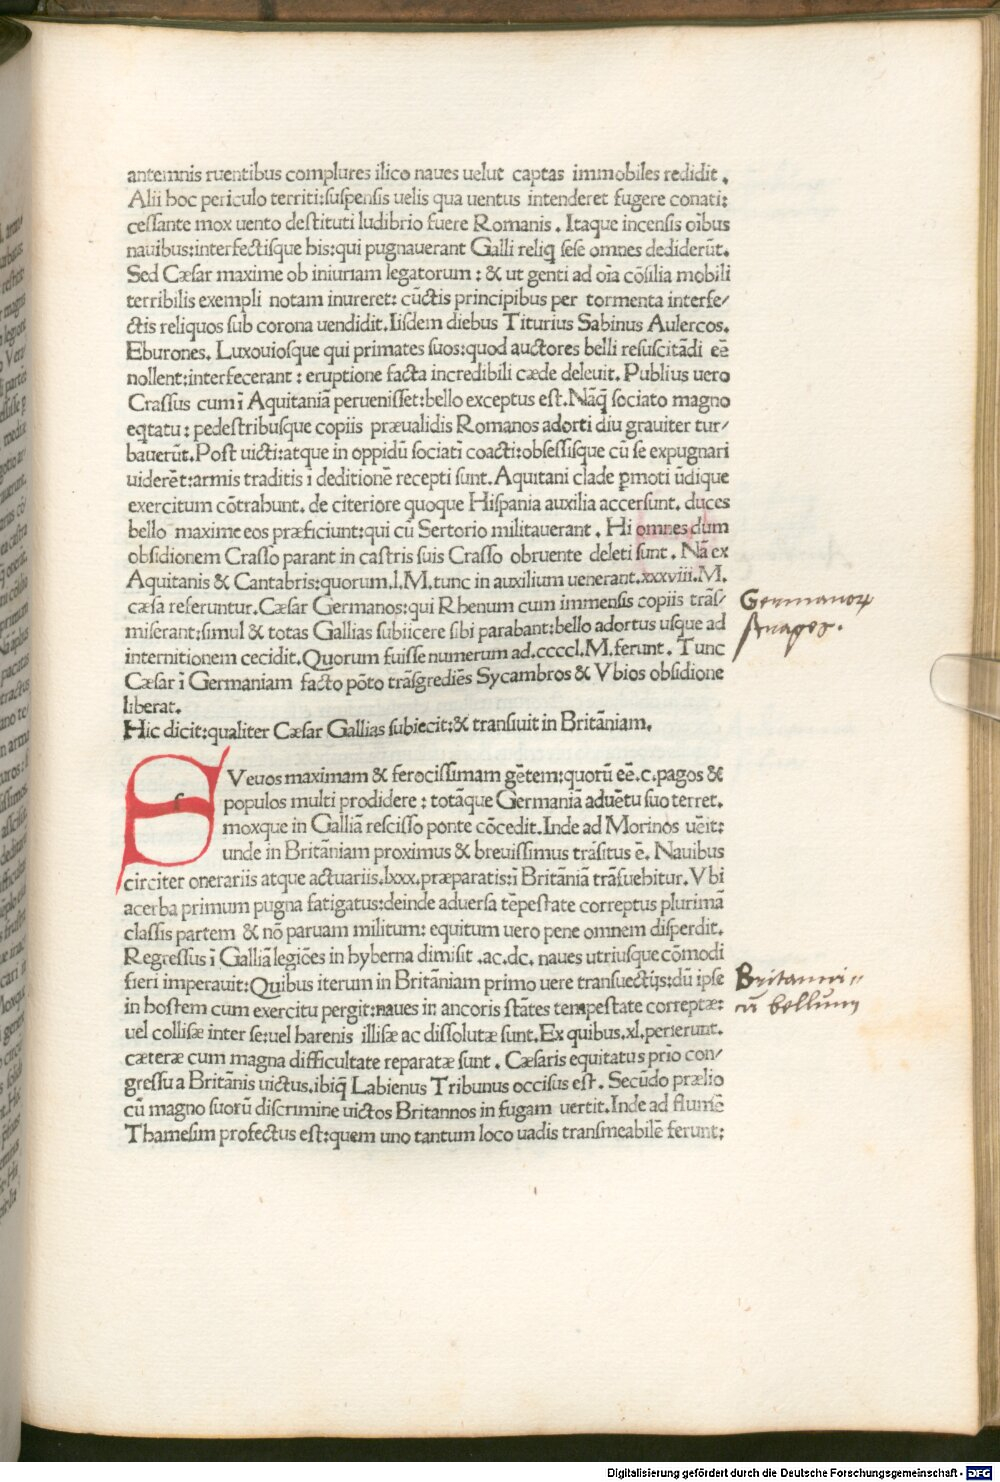 antemnis ruentibus complures ilico naues uelut captas immobiles redidit.
Alii hoc periculo territi:suspensis uelis qua uentus intenderet fugere conati:
cessante mox uento destituti ludibrio fuere Romanis. Itaque incensis oı̄bus
nauibus:interfectisque his:qui pugnauerant Galli reliq̨ sese omnes dediderūt.
Sed Cæsar maxime ob iniuriam legatorum: & ut genti ad oı̄a cōsilia mobili
terribilis exempli notam inureret: cūctis principibus per tormenta interfe/
ctis reliquos sub corona uendidit. Iisdem diebus Titurius Sabinus Aulercos.
Eburones. Luxouiosque qui primates suos:quod auctores belli resuscitādi eē
nollent:interfecerant: eruptione facta incredibili cæde deleuit. Publius uero
Crassus cum ī Aquitaniā peruenisset:bello exceptus est. Nāq̨ sociato magno
eq̨tatu: pedestribusque copiis præualidis Romanos adorti diu grauiter tur/
bauerūt. Post uicti:atque in oppidū sociati coacti:obsessisque cū se expugnari
uiderēt:armis traditis ı deditionē recepti sunt. Aquitani clade ꝑmoti ūdique
exercitum cōtrahunt. de citeriore quoque Hispania auxilia accersunt. duces
bello maxime eos præficiunt:qui cū Sertorio militauerant. Hi omnes dum
obsidionem Crasso parant in castris suis Crasso obruente deleti sunt. Nā ex
Aquitanis & Cantabris:quorum.l.M.tunc in auxilium uenerant.xxxviii.M.
cæsa referuntur. Cæsar Germanos:qui Rhenum cum immensis copiis trās/
miserant:simul & totas Gallias subiicere sibi parabant:bello adortus usque ad
internitionem cecidit. Quorum fuisse numerum ad.ccccl.M.ferunt. Tunc
Cæsar ī Germaniam facto pōto trāsgrediēs Sycambros & Vbios obsidione
liberat.
Germanorꝝ
strages.
Hic dicit:qualiter Cæsar Gallias subiecit:& transiuit in Britāniam.
SVeuos maximam & ferocissimam gētem:quorū eē.c.pagos &
populos multi prodidere: totāque Germaniā aduētu suo terret.
moxque in Galliā rescisso ponte cōcedit. Inde ad Morinos uēit:
unde in Britāniam proximus & breuissimus trāsitus ē. Nauibus
circiter onerariis atque actuariis.lxxx.præparatis:ī Britāniā trāsuehitur. Vbi
acerba primum pugna fatigatus:deinde aduersa tēpestate correptus plurimā
classis partem & nō paruam militum: equitum uero pene omnem disperdit.
Regressus ī Galliā legiōes in hyberna dimisit .ac.dc. naues utriusque cōmodi
fieri imperauit: Quibus iterum in Britāniam primo uere transuectijs:dū ipse
in hostem cum exercitu pergit:naues in ancoris stātes tempestate correptæ:
uel collisæ inter se:uel harenis illisæ ac dissolutæ sunt. Ex quibus.xl.perierunt.
cæteræ cum magna difficultate reparatæ sunt. Cæsaris equitatus prı̄o con/
gressu a Britānis uictus.ibiq̨ Labienus Tribunus occisus est. Secūdo prælio
cū magno suorū discrimine uictos Britannos in fugam uertit. Inde ad flumē
Thamesim profectus est:quem uno tantum loco uadis transmeabilē ferunt:
Britanni-
cū bellum
Digitalisierung gefördert durch die Deutsche Forschungsgemeinschaft - DFG